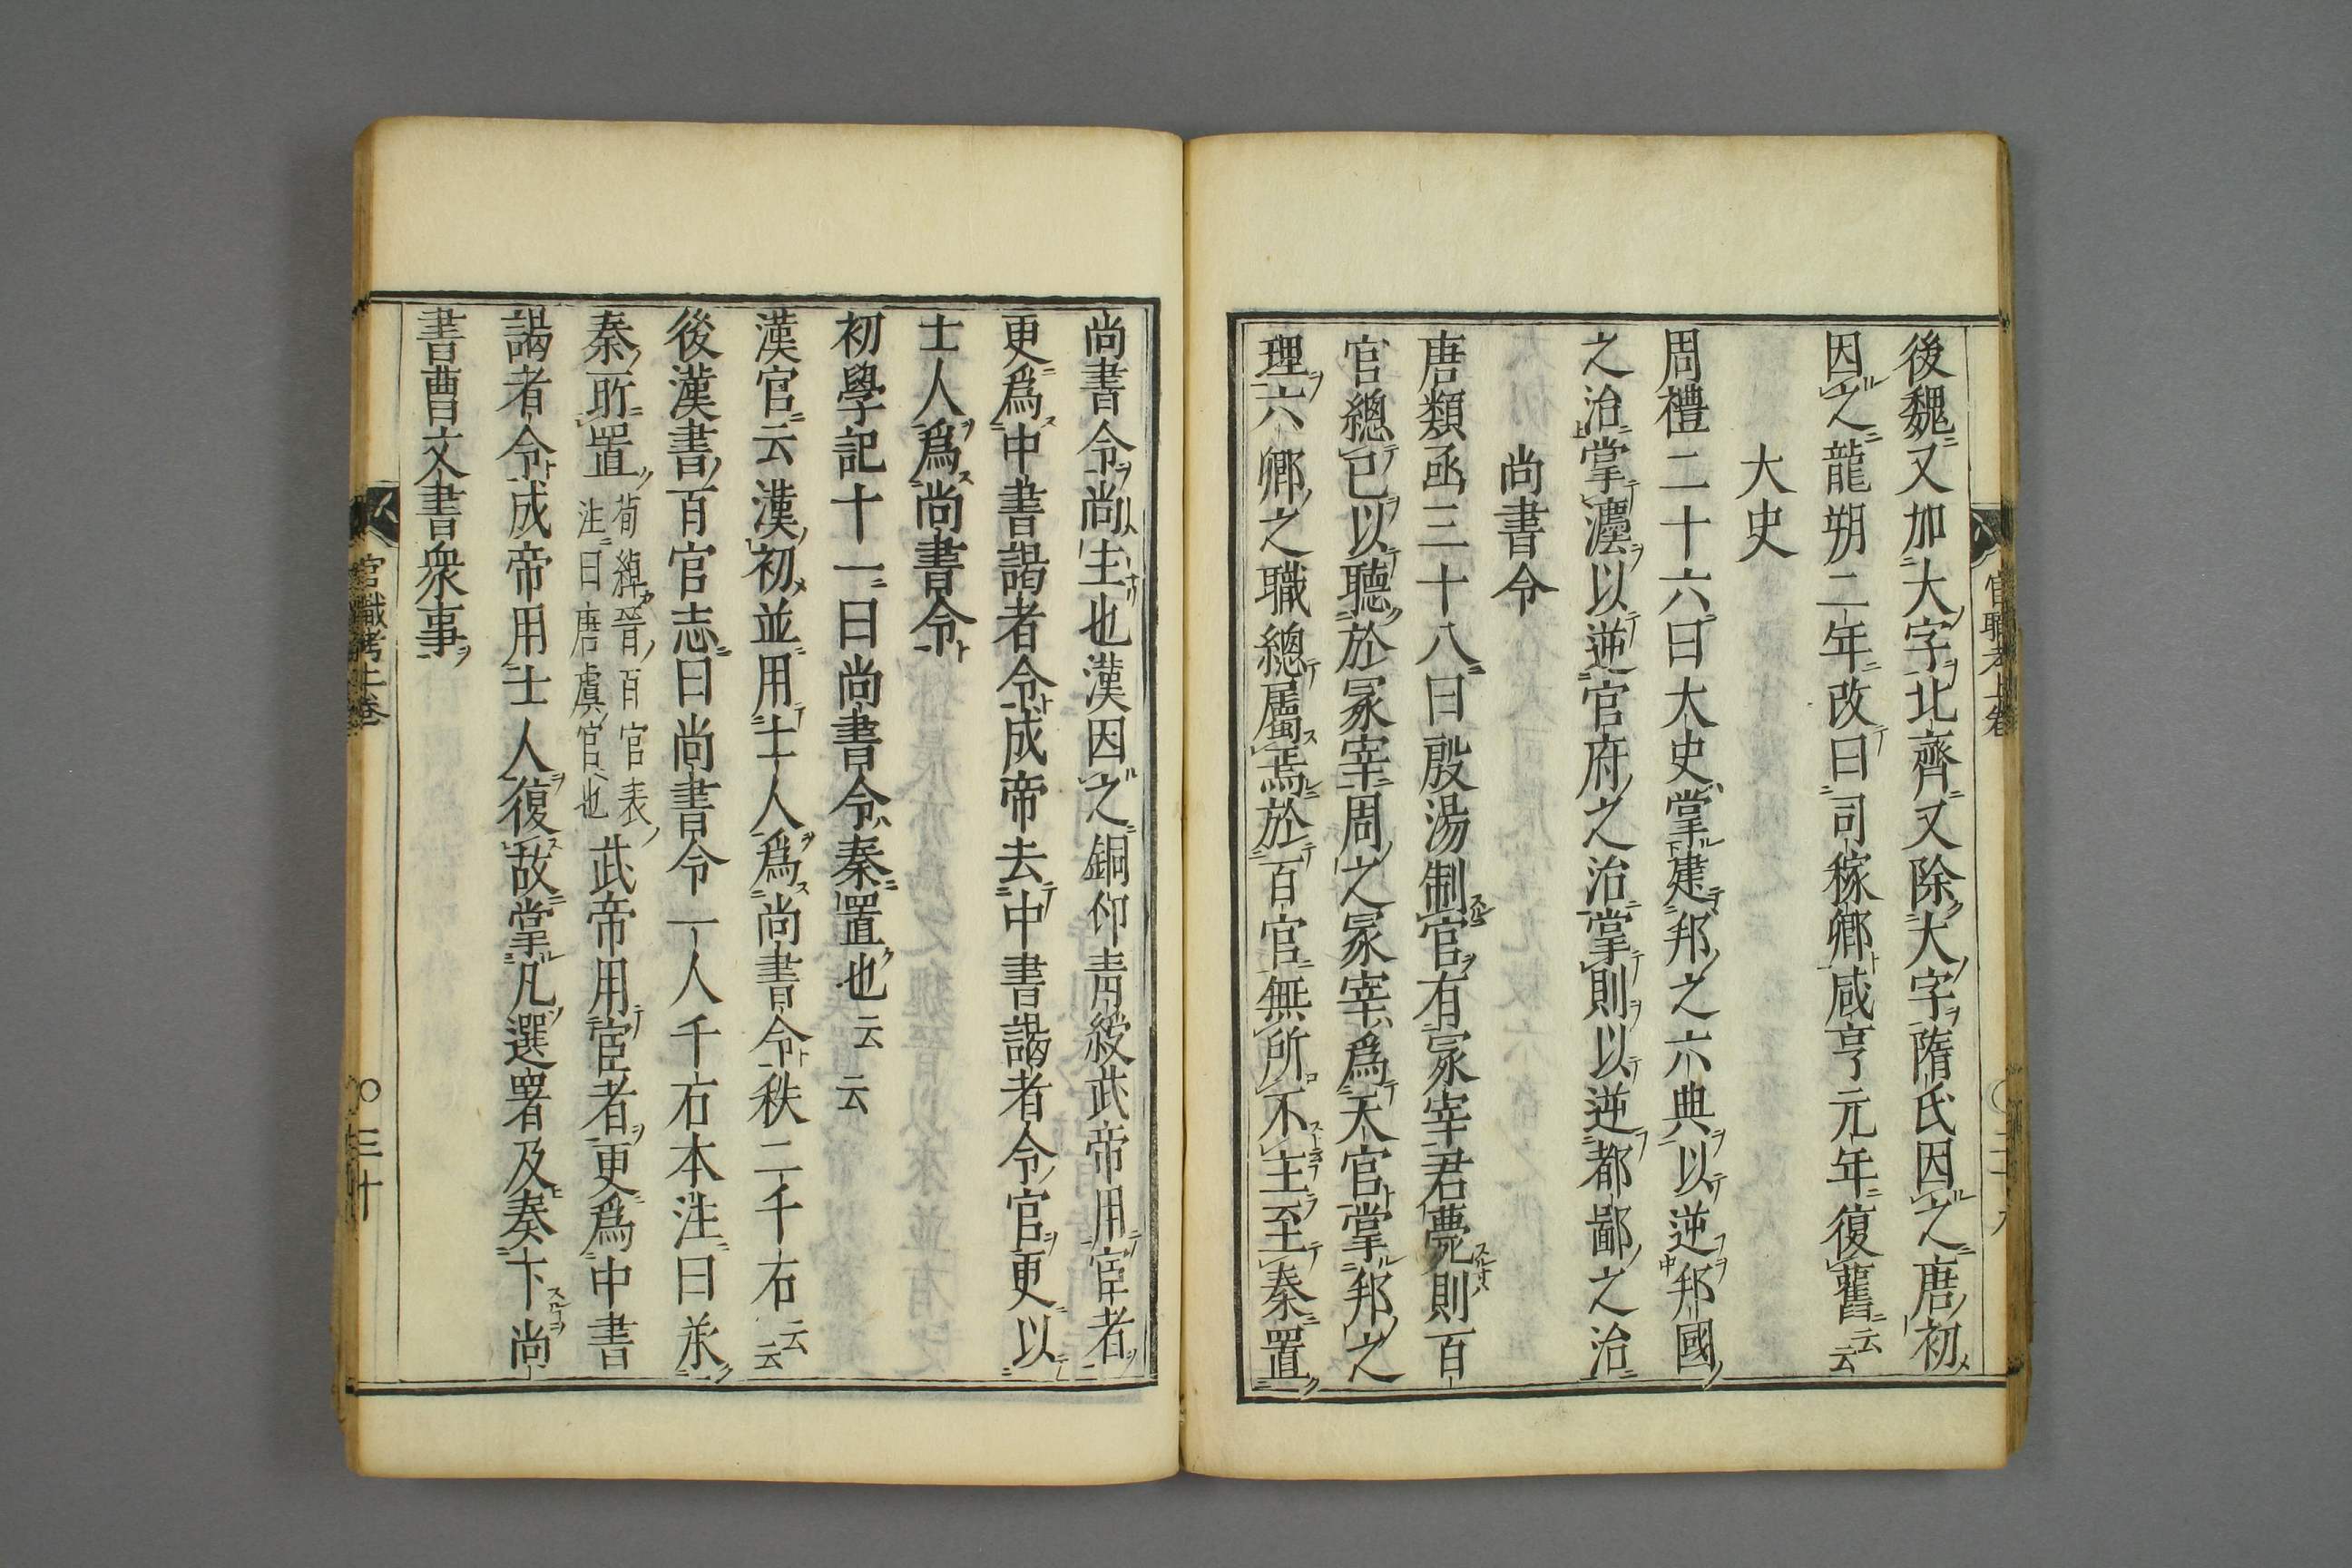 後魏又加大字北齊又除大字隋氏因之唐初
因之龍朔二年改曰司稼卿咸亨元年復舊云云
大史
周禮二十六曰大史掌建邦之六典以逆邦國
之治掌灋以逆官府之治掌則以逆都鄙之治
尚書令
唐類函三十八曰殷湯制官有冢宰君薨則百
官總已以聽於冢宰周之冢宰為天官掌邦之
理六卿之職總屬焉於百官無所不主至秦置
尚書令尚主也漢因之銅印青綬武帝用宦者
更爲中書謁者令成帝去中書謁者令官更以
士人爲尚書令
初學記十一曰尚書令秦置也云云
漢官云漢初並用士人爲尚書令秩二千石云云
後漢書百官志曰尚書令一人千石本注曰承
秦所置荀綽晉百官表注曰唐虞官也武帝用宦者更爲中書
謁者令成帝用士人復故掌凡選署及奏下尚
書曹文書衆事
官職考上卷
三十